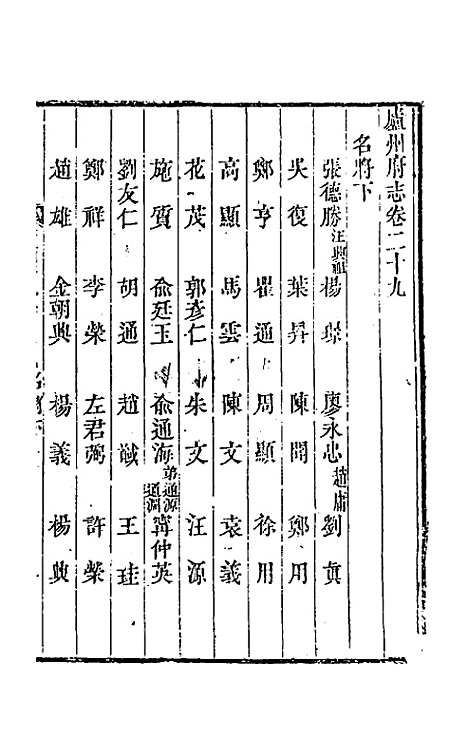 廬州府志卷二十九
名將下
張德勝 汪興祖 楊璟 廖永忠 趙庸 劉真
吳復 葉昇 陳聞 鄭用
鄭亨 瞿通 周顯 徐用
高顯 馬雲 陳文 袁義
花茂 郭彥仁 朱文 汪源
施質 俞廷玉 俞通海 弟通源 通淵 甯仲英
劉友仁 胡通 趙 王珪
鄭祥 李榮 左君弼 許榮
趙雄 金朝興 楊義 楊興